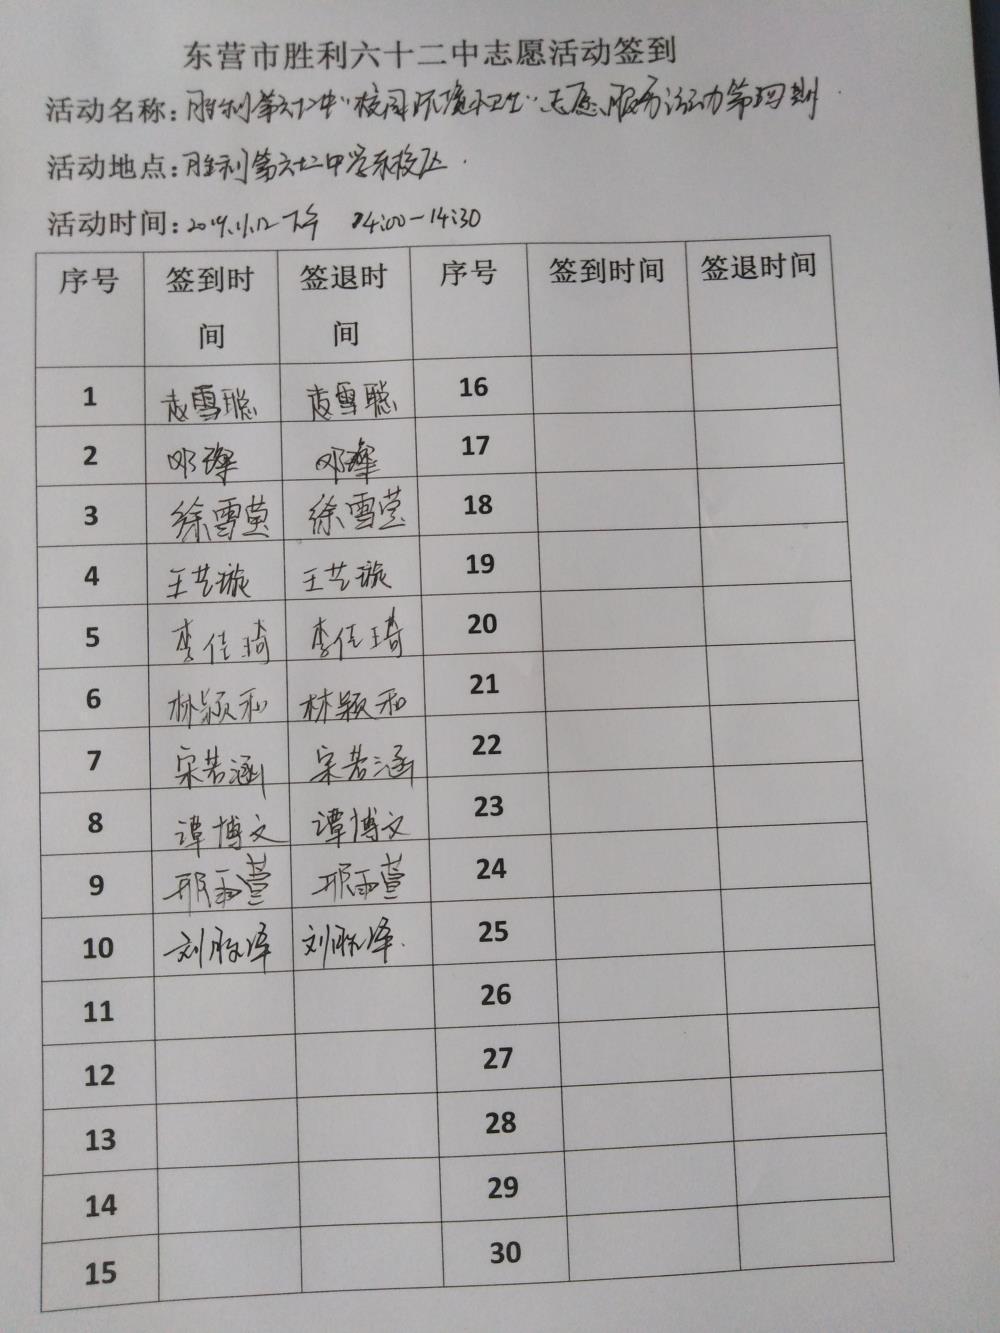 东营市胜利六十二中志愿活动签到
活动名称：胜利第六十二中“校园环境卫生”志愿服务活动第四期
活动地点：胜利第六十二中学东校区
活动时间：2019.11.12下午 14:00-14:30
序号 签到时间 签退时间 序号 签到时间 签退时间
1 赵雪聪 赵雪聪 16
2 邓璨 邓璨 17
3 徐雪莹 徐雪莹 18
4 王艺璇 王艺璇 19
5 李佳琦 李佳琦 20
6 林颖和 林颖和 21
7 宋若涵 宋若涵 22
8 谭博文 谭博文 23
9 邢雨萱 邢雨萱 24
10 刘 泽 刘 泽 25
11 26
12 27
13 28
14 29
15 30